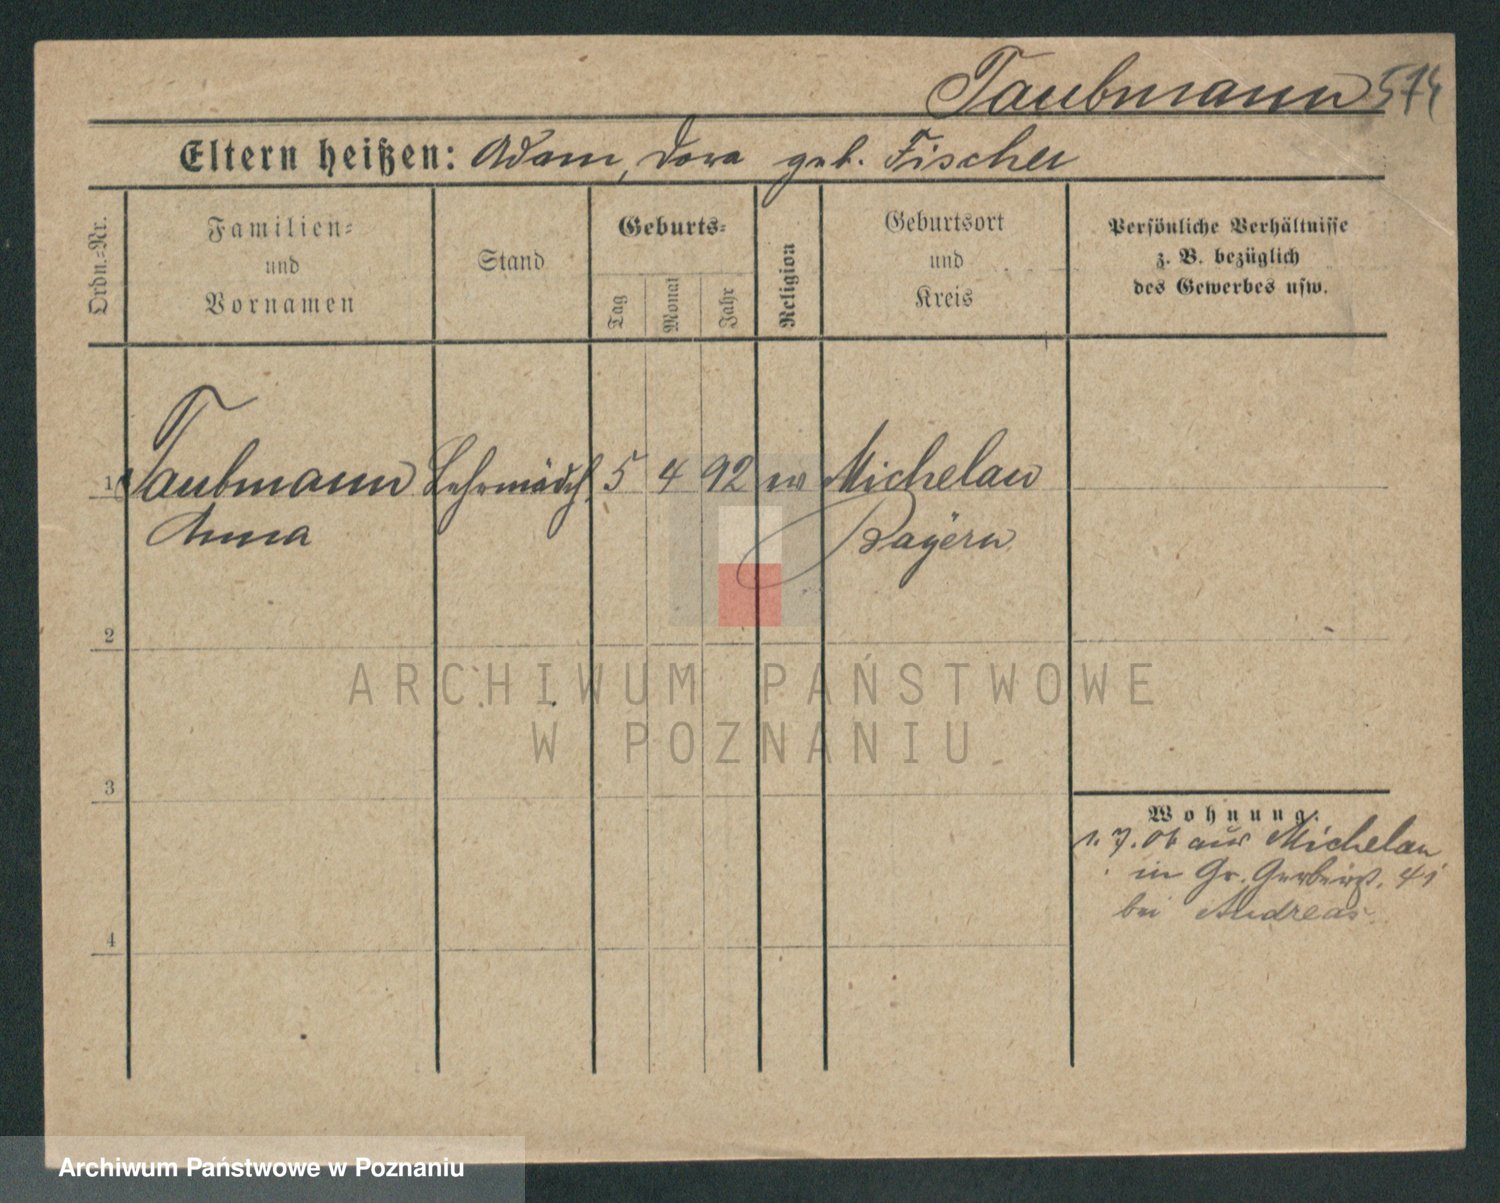 Taubmann 574
Eltern heißen: Adam, Dora geb. Fischer
Ordn.-Nr.
Familien-
und
Vornamen
Stand
Geburts-
Tag
Monat
Jahr
Religion
Geburtsort
und
Kreis
Persönliche Verhältnisse
z. B. bezüglich
des Gewerbes usw.
1 Taubmann Lehrmädch. 5 4 92 ev Michelau
Anna Bayern
2
ARCHIWUM PAŃSTWOWE
W POZNANIU
3
Wohnung:
1. 7. 06 aus Michelau
in Gr. Gerberst. 41
bei Andreas
4
Archiwum Państwowe w Poznaniu